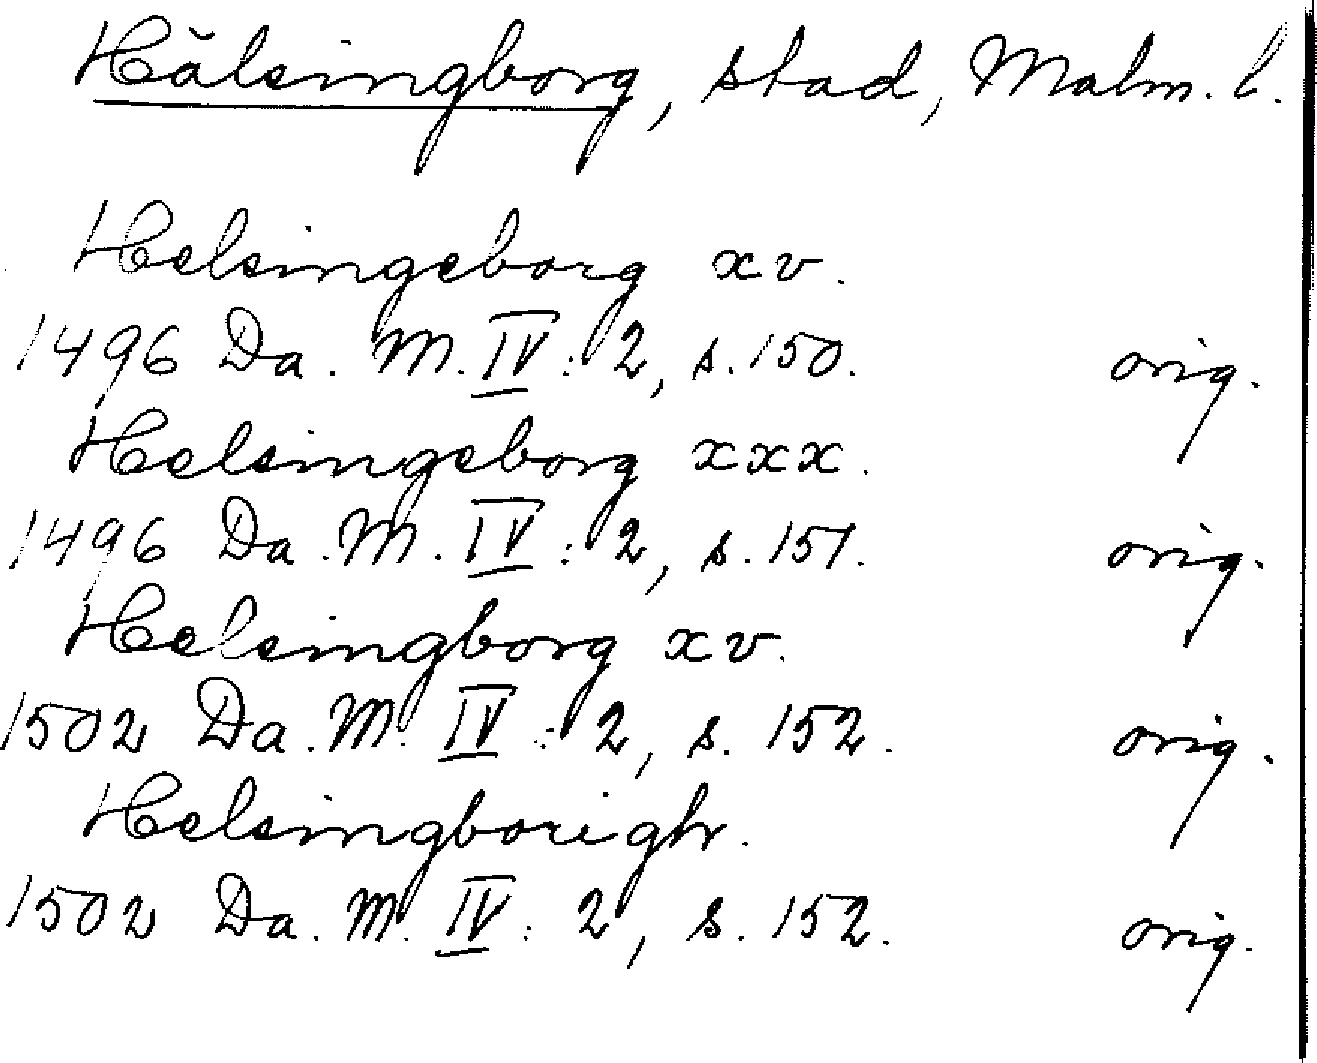 Hälsingborg, stad, Malm. l.
Helsingeborg xv.
1496 Da. M. IV: 2, s. 150. orig.
Helsingeborg xxx.
1496 Da. M. IV: 2, s. 151. orig.
Helsingborg xv.
1502 Da. M. IV: 2, s. 152. orig.
Helsingborigh.
1502 Da. M. IV: 2, s. 152. orig.